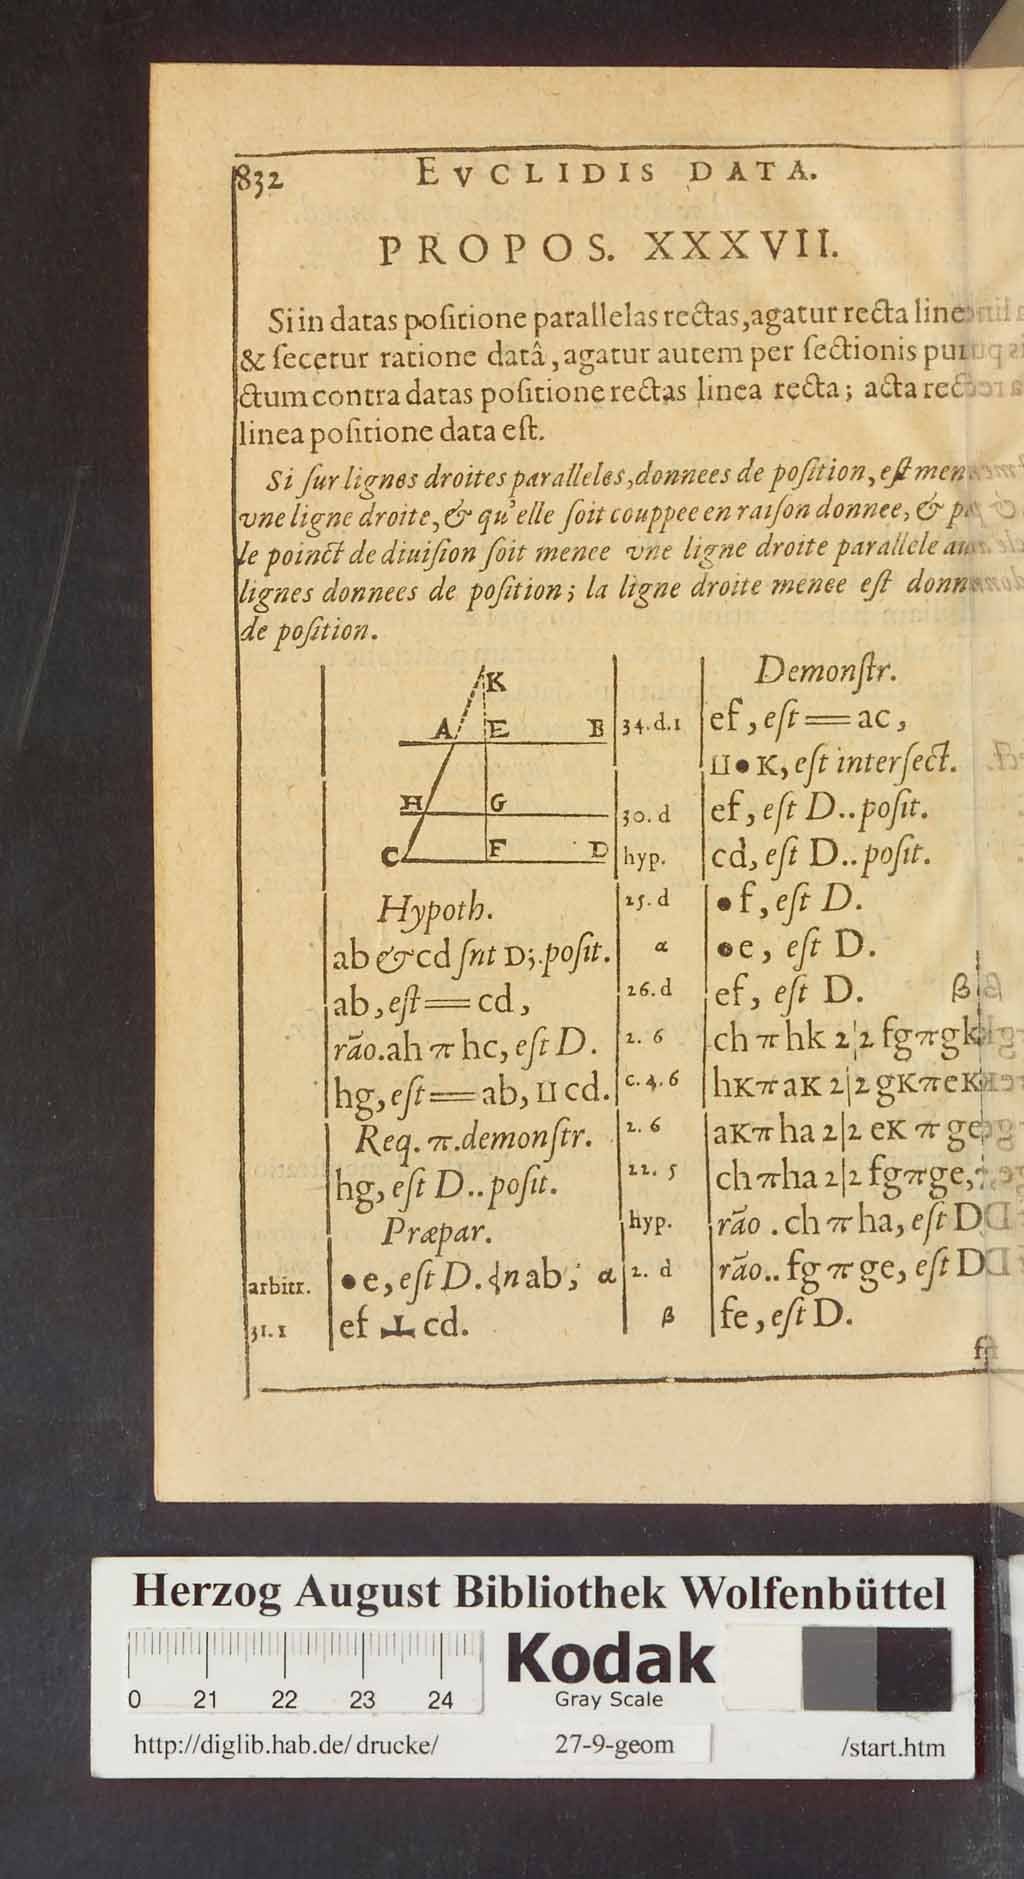 832 EVCLIDIS DATA.
PROPOS. XXXVII.
Si in datas positione parallelas rectas, agatur recta line
& secetur ratione datâ, agatur autem per sectionis pun
ctum contra datas positione rectas linea recta; acta rec
linea positione data est.
Si sur lignes droites paralleles, donnees de position, est men
vne ligne droite, & qu'elle soit couppee en raison donnee, & p
le poinct de diuision soit menee vne ligne droite parallele au
lignes donnees de position; la ligne droite menee est donn
de position.
K
A E B
H G
C F D
Hypoth.
ab & cd snt D;.posit.
ab, est == cd,
rão.ah π hc, est D.
hg, est == ab, ⊔ cd.
Req. π.demonstr.
hg, est D..posit.
Præpar.
arbitr. •e, est D. {n ab; α
31.1 ef ⊥ cd.
Demonstr.
34.d.1 ef, est == ac,
⊔ • K, est intersect.
30.d ef, est D..posit.
hyp. cd, est D..posit.
25.d •f, est D.
α •e, est D.
26.d ef, est D. β
2. 6 ch π hk 2|2 fg π gk
c.4.6 hK π aK 2|2 gK π eK
2. 6 aK π ha 2|2 eK π ge
22. 5 ch π ha 2|2 fg π ge,
hyp. rão . ch π ha, est D
2. d rão.. fg π ge, est D
β fe, est D.
Herzog August Bibliothek Wolfenbüttel
0 21 22 23 24
Kodak
Gray Scale
http://diglib.hab.de/drucke/ 27-9-geom /start.htm